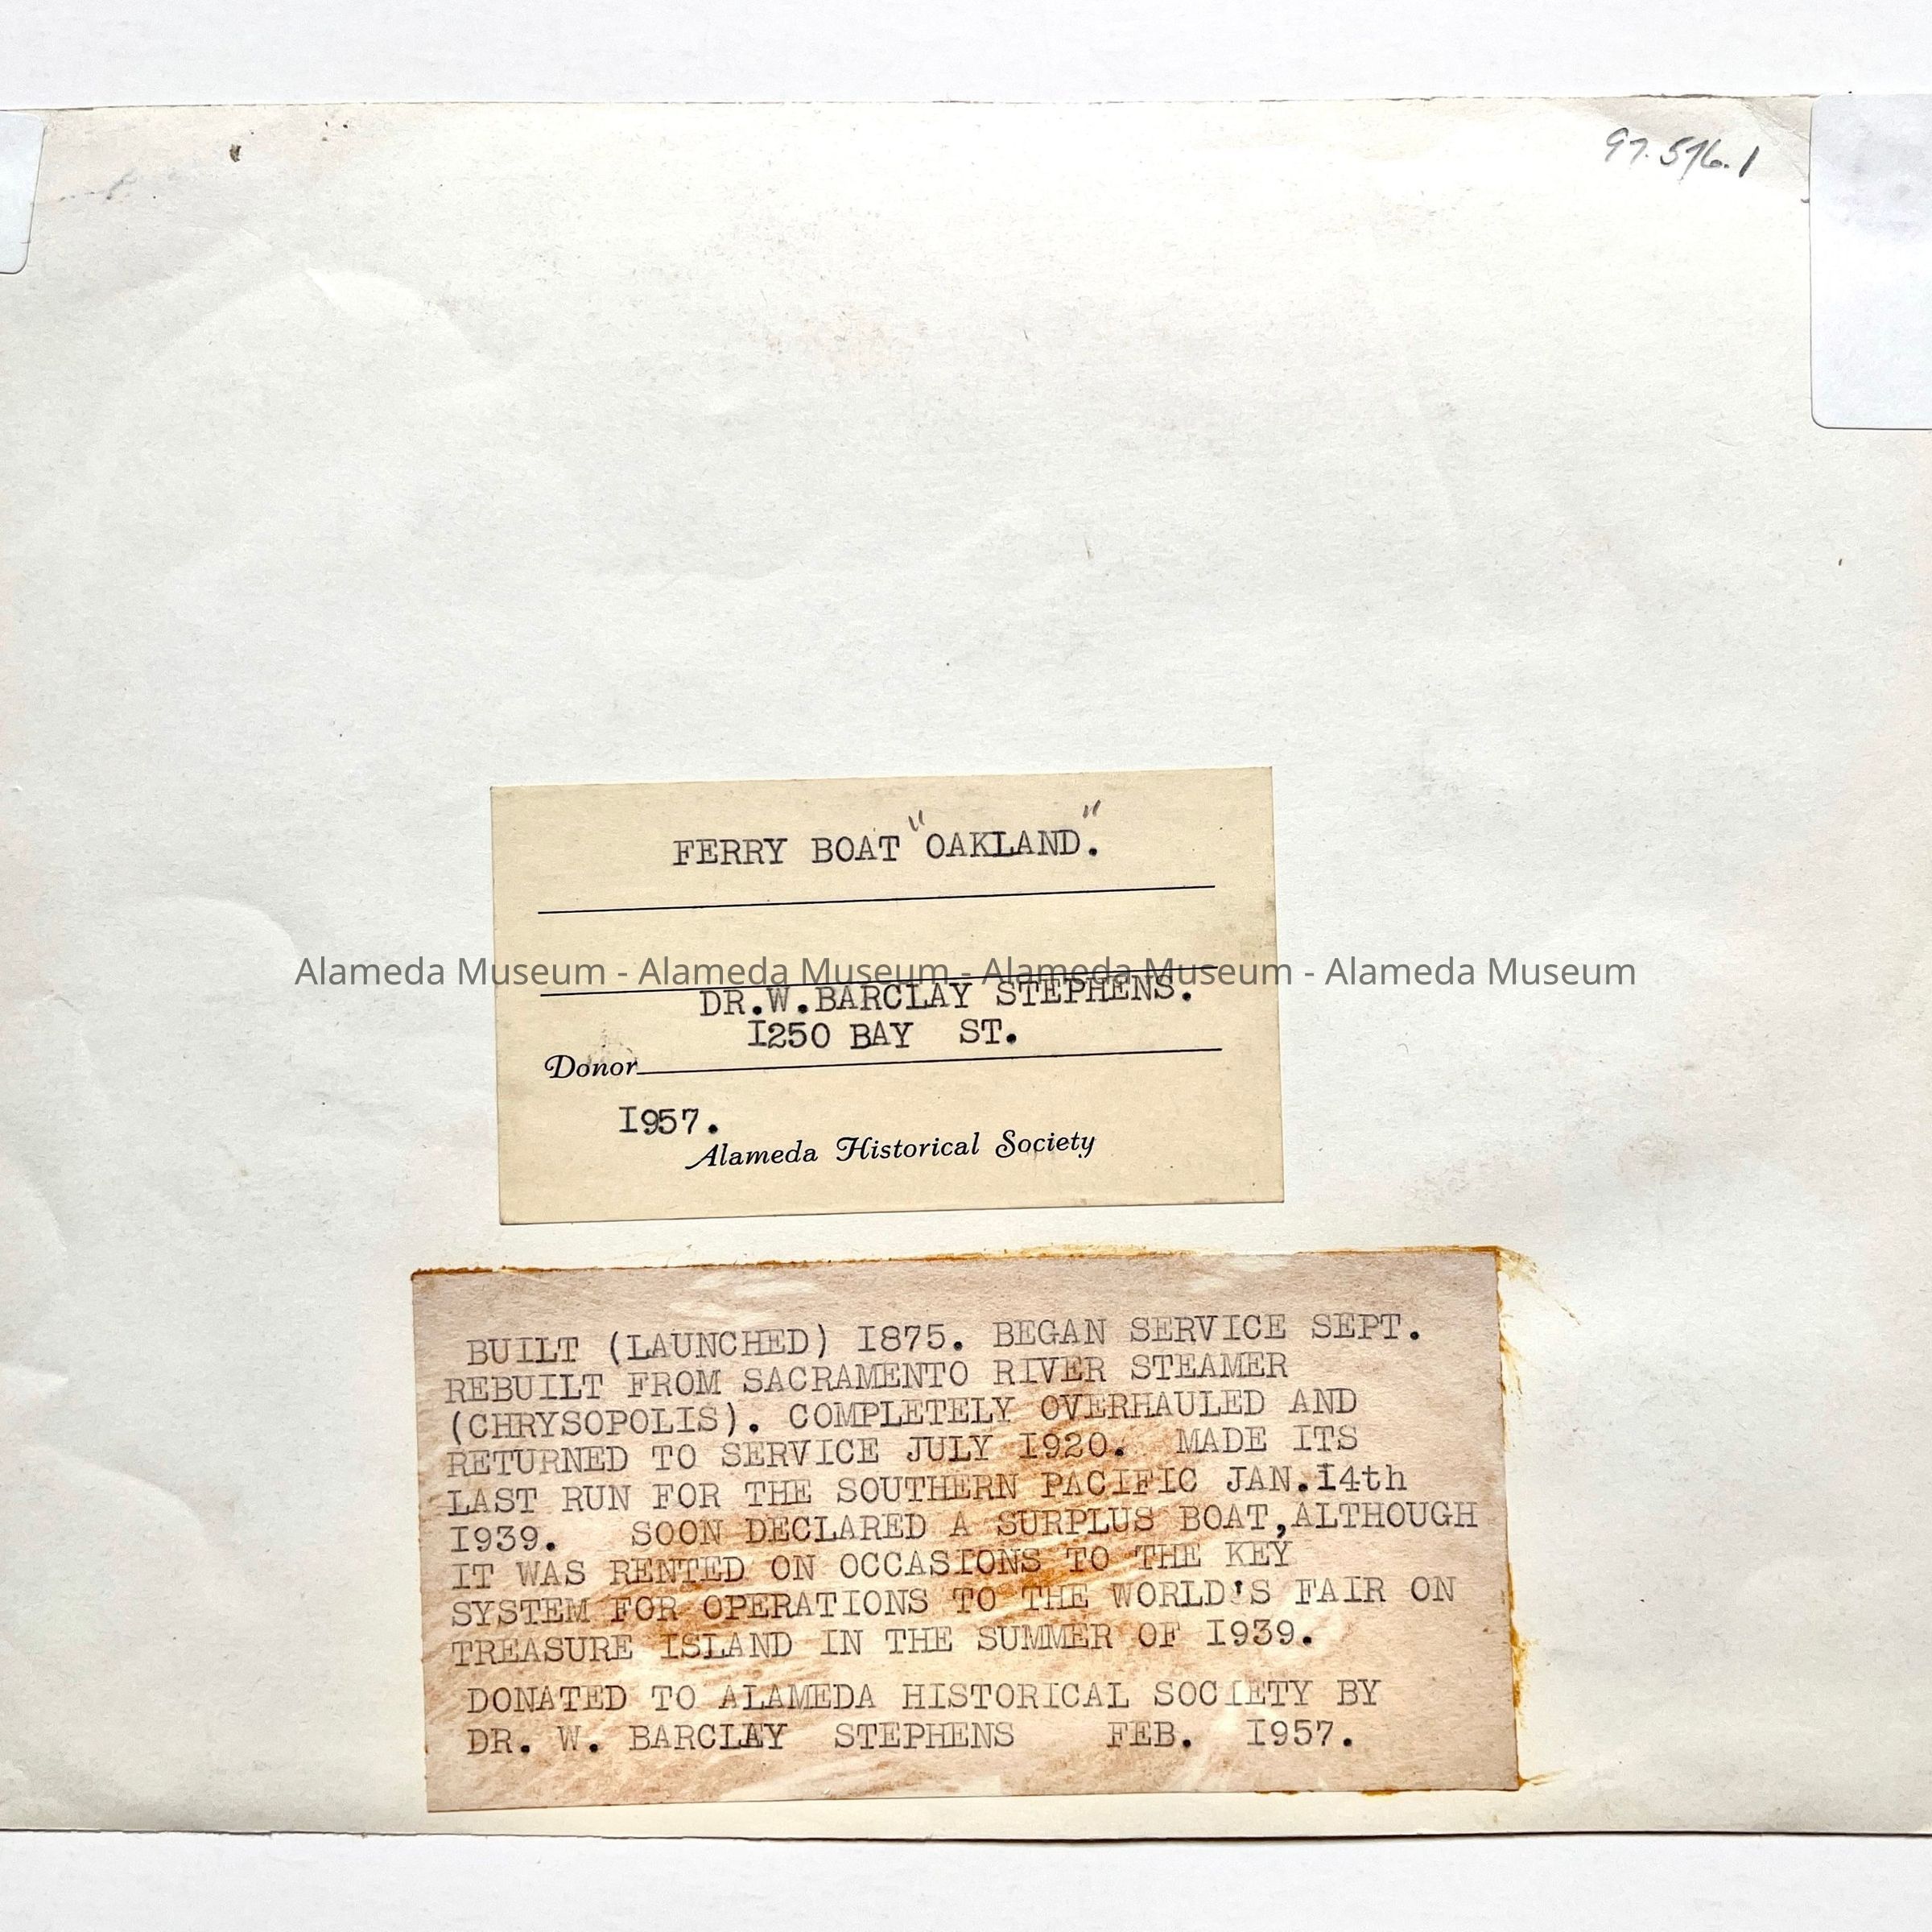 97.576.1
FERRY BOAT "OAKLAND."
Alameda Museum - Alameda Museum - Alameda Museum - Alameda Museum
DR.W.BARCLAY STEPHENS.
I250 BAY ST.
Donor
I957.
Alameda Historical Society
BUILT (LAUNCHED) I875. BEGAN SERVICE SEPT.
REBUILT FROM SACRAMENTO RIVER STEAMER
(CHRYSOPOLIS). COMPLETELY OVERHAULED AND
RETURNED TO SERVICE JULY I920. MADE ITS
LAST RUN FOR THE SOUTHERN PACIFIC JAN.I4th
I939. SOON DECLARED A SURPLUS BOAT,ALTHOUGH
IT WAS RENTED ON OCCASIONS TO THE KEY
SYSTEM FOR OPERATIONS TO THE WORLD'S FAIR ON
TREASURE ISLAND IN THE SUMMER OF I939.
DONATED TO ALAMEDA HISTORICAL SOCIETY BY
DR. W. BARCLAY STEPHENS FEB. I957.